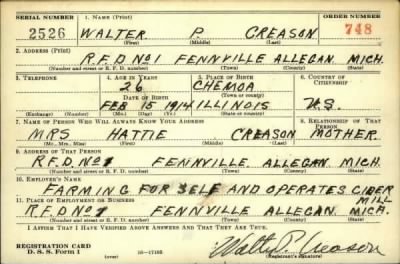 SERIAL NUMBER 1. NAME (Print) ORDER NUMBER
2526 WALTER P. CREASON 748
(First) (Middle) (Last)
2. ADDRESS (Print)
R.F.D No 1 FENNVILLE ALLEGAN MICH.
(Number and street or R. F. D. number) (Town) (County) (State)
3. TELEPHONE 4. AGE IN YEARS 5. PLACE OF BIRTH 6. COUNTRY OF CITIZENSHIP
26 CHEMOA
DATE OF BIRTH (Town or county)
FEB 15 1914 ILLINOIS U.S.
(Exchange) (Number) (Mo.) (Day) (Yr.) (State or country)
7. NAME OF PERSON WHO WILL ALWAYS KNOW YOUR ADDRESS 8. RELATIONSHIP OF THAT PERSON
MRS HATTIE CREASON MOTHER.
(Mr., Mrs., Miss) (First) (Middle) (Last)
9. ADDRESS OF THAT PERSON
R.F.D. No 1 FENNVILLE. ALLEGAN MICH.
(Number and street or R. F. D. number) (Town) (County) (State)
10. EMPLOYER'S NAME
FARMING FOR SELF AND OPERATES CIDER MILL
11. PLACE OF EMPLOYMENT OR BUSINESS
R.F.D No 1 FENNVILLE ALLEGAN MICH.
(Number and street or R. F. D. number) (Town) (County) (State)
I AFFIRM THAT I HAVE VERIFIED ABOVE ANSWERS AND THAT THEY ARE TRUE.
REGISTRATION CARD
D. S. S. Form 1 16-17105 Walter P. Creason
(Registrant's signature)